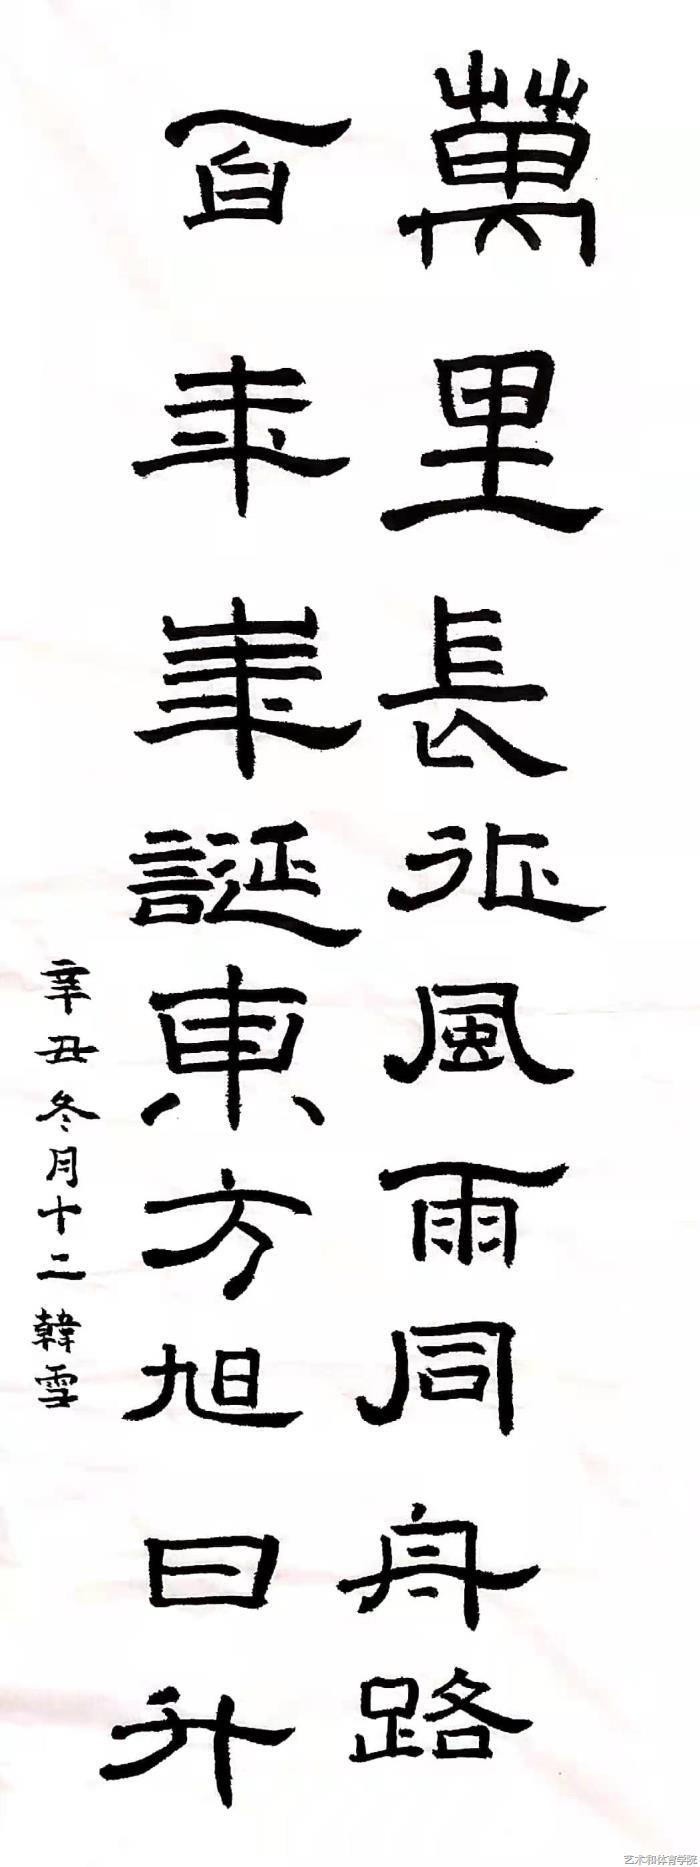 萬里長征風雨同舟路
百年華誕東方旭日升
辛丑冬月十二韓雪
艺术和体育学院